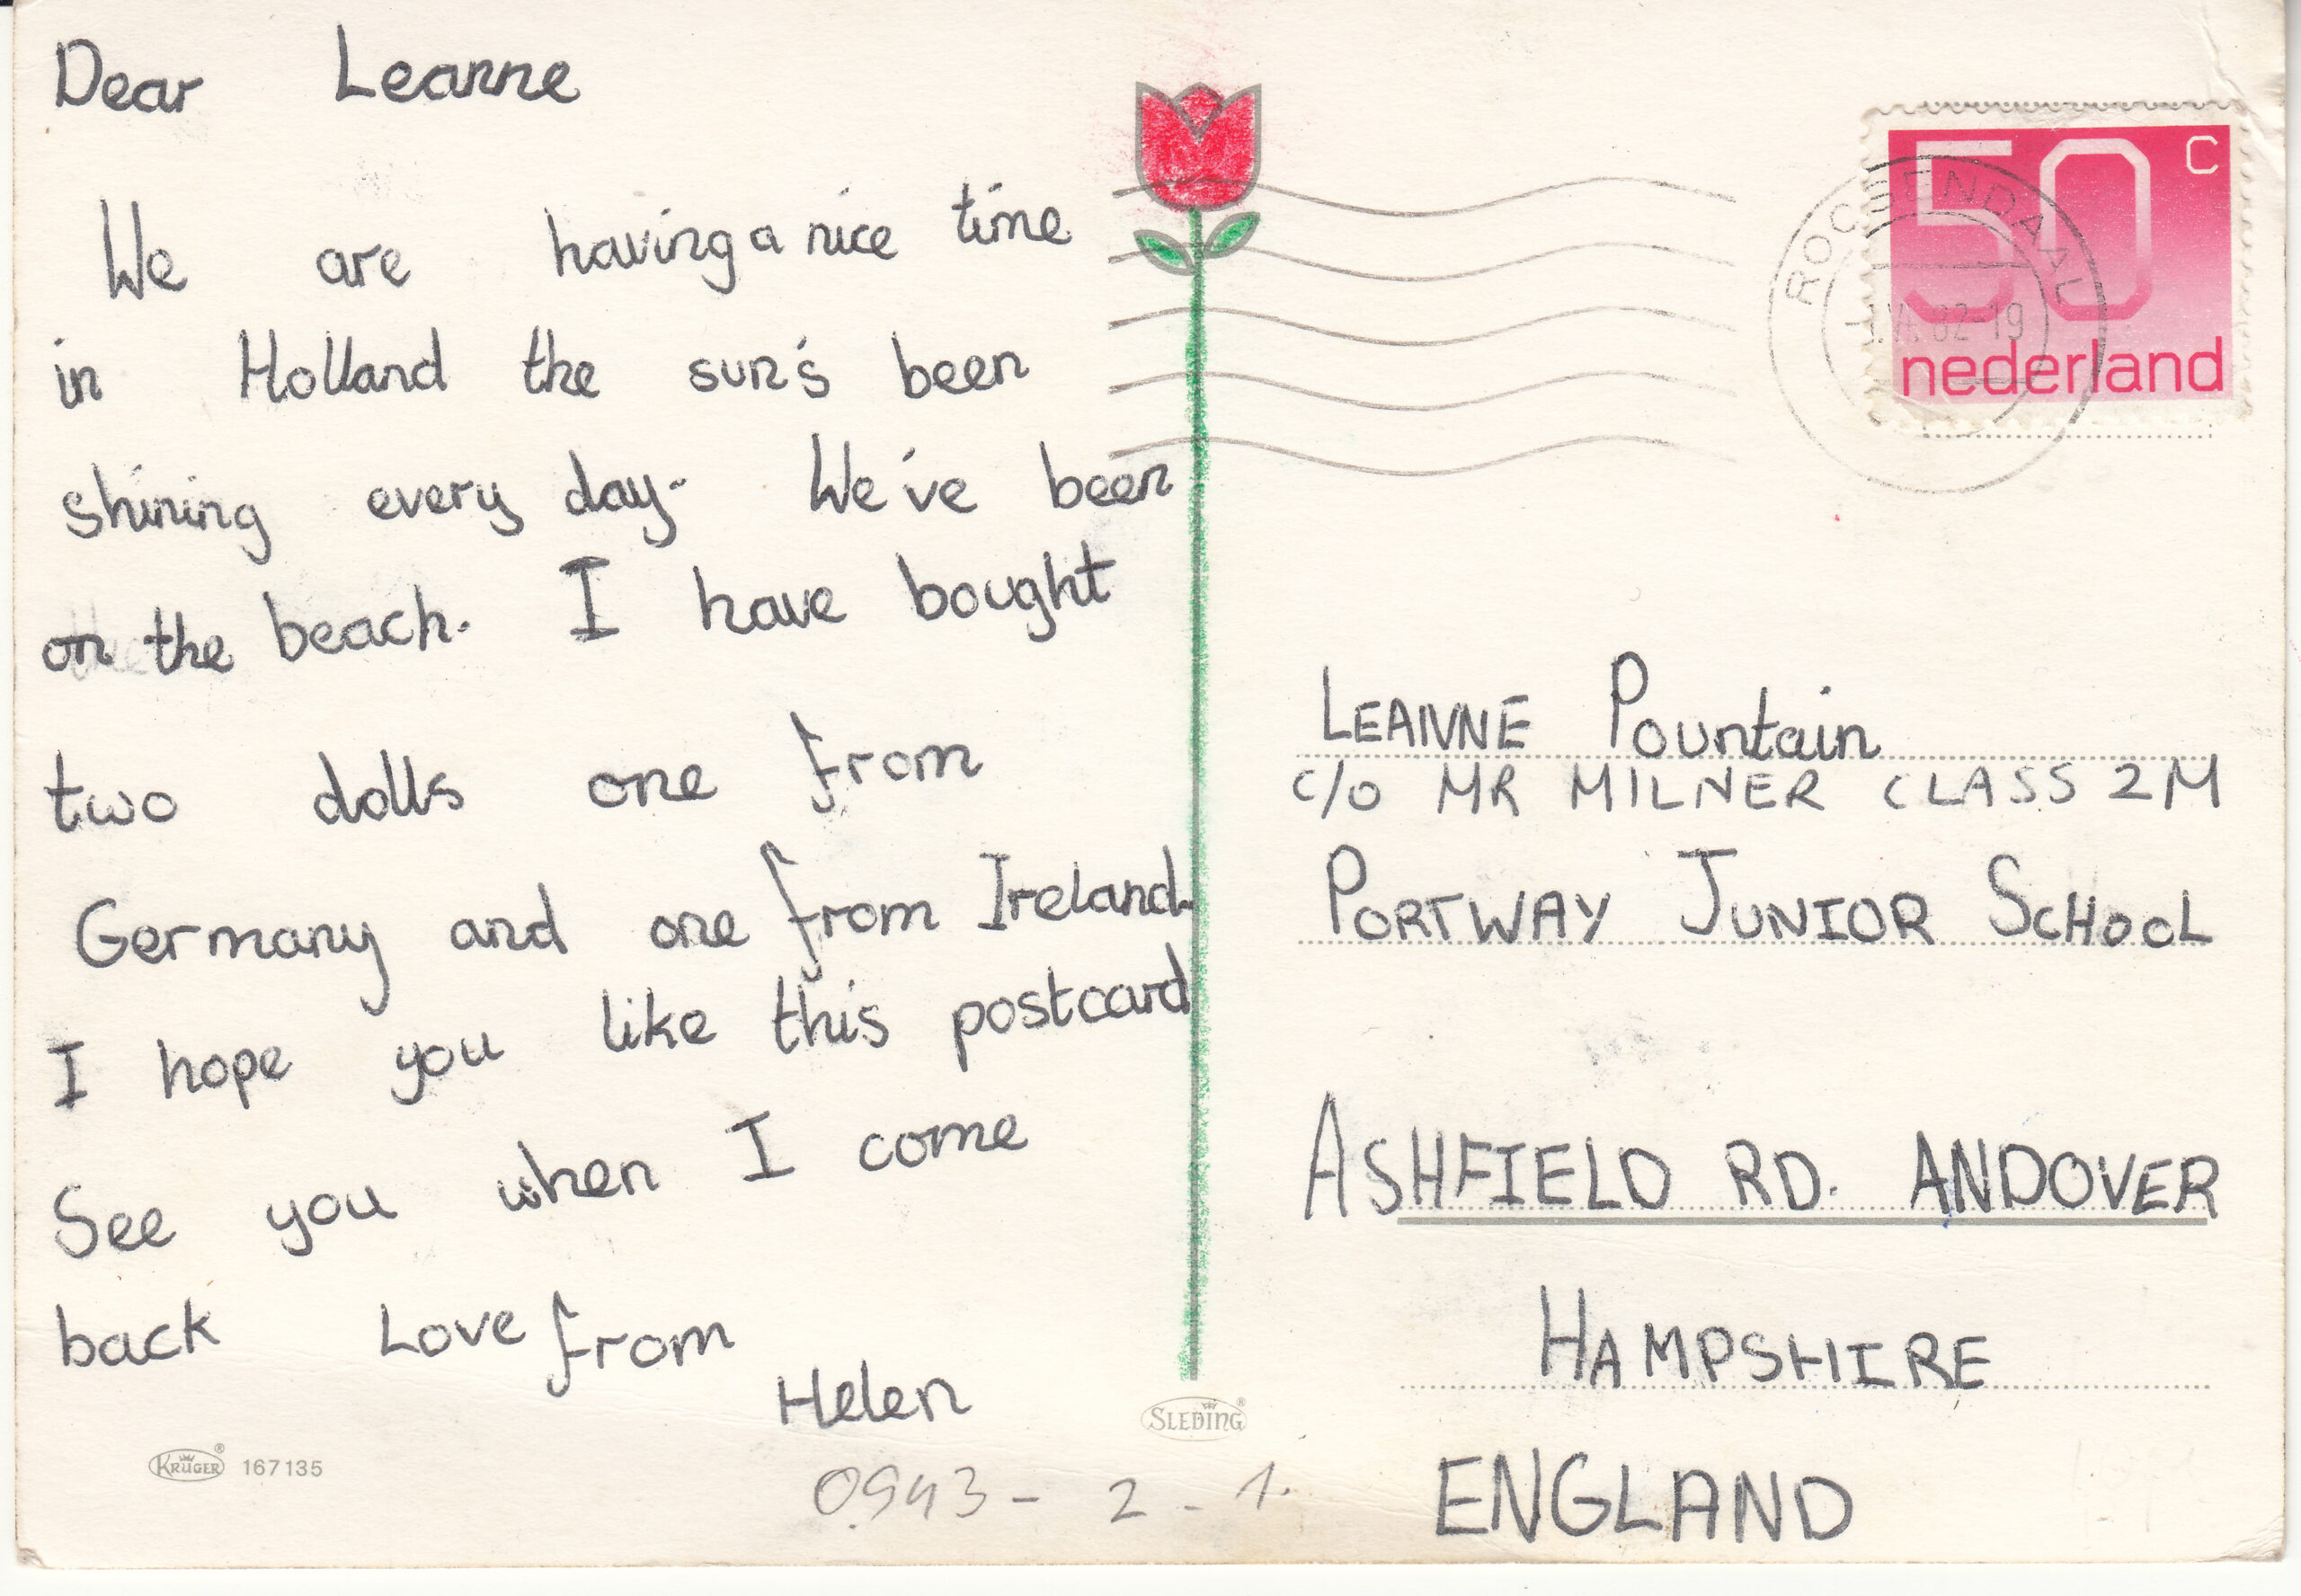 Dear Leanne
We are having a nice time
in Holland the sun's been
shining every day. We've been
on the beach. I have bought
two dolls one from
Germany and one from Ireland.
I hope you like this postcard
See you when I come
back Love from
Helen
KRÜGER® 167135
0943 - 2 - 1.
SLEDING®
50 c
nederland
ROOSENDAAL
82-19
LEANNE Pountain
C/O MR MILNER CLASS 2M
PORTWAY JUNIOR SCHOOL
ASHFIELD RD. ANDOVER
HAMPSHIRE
ENGLAND